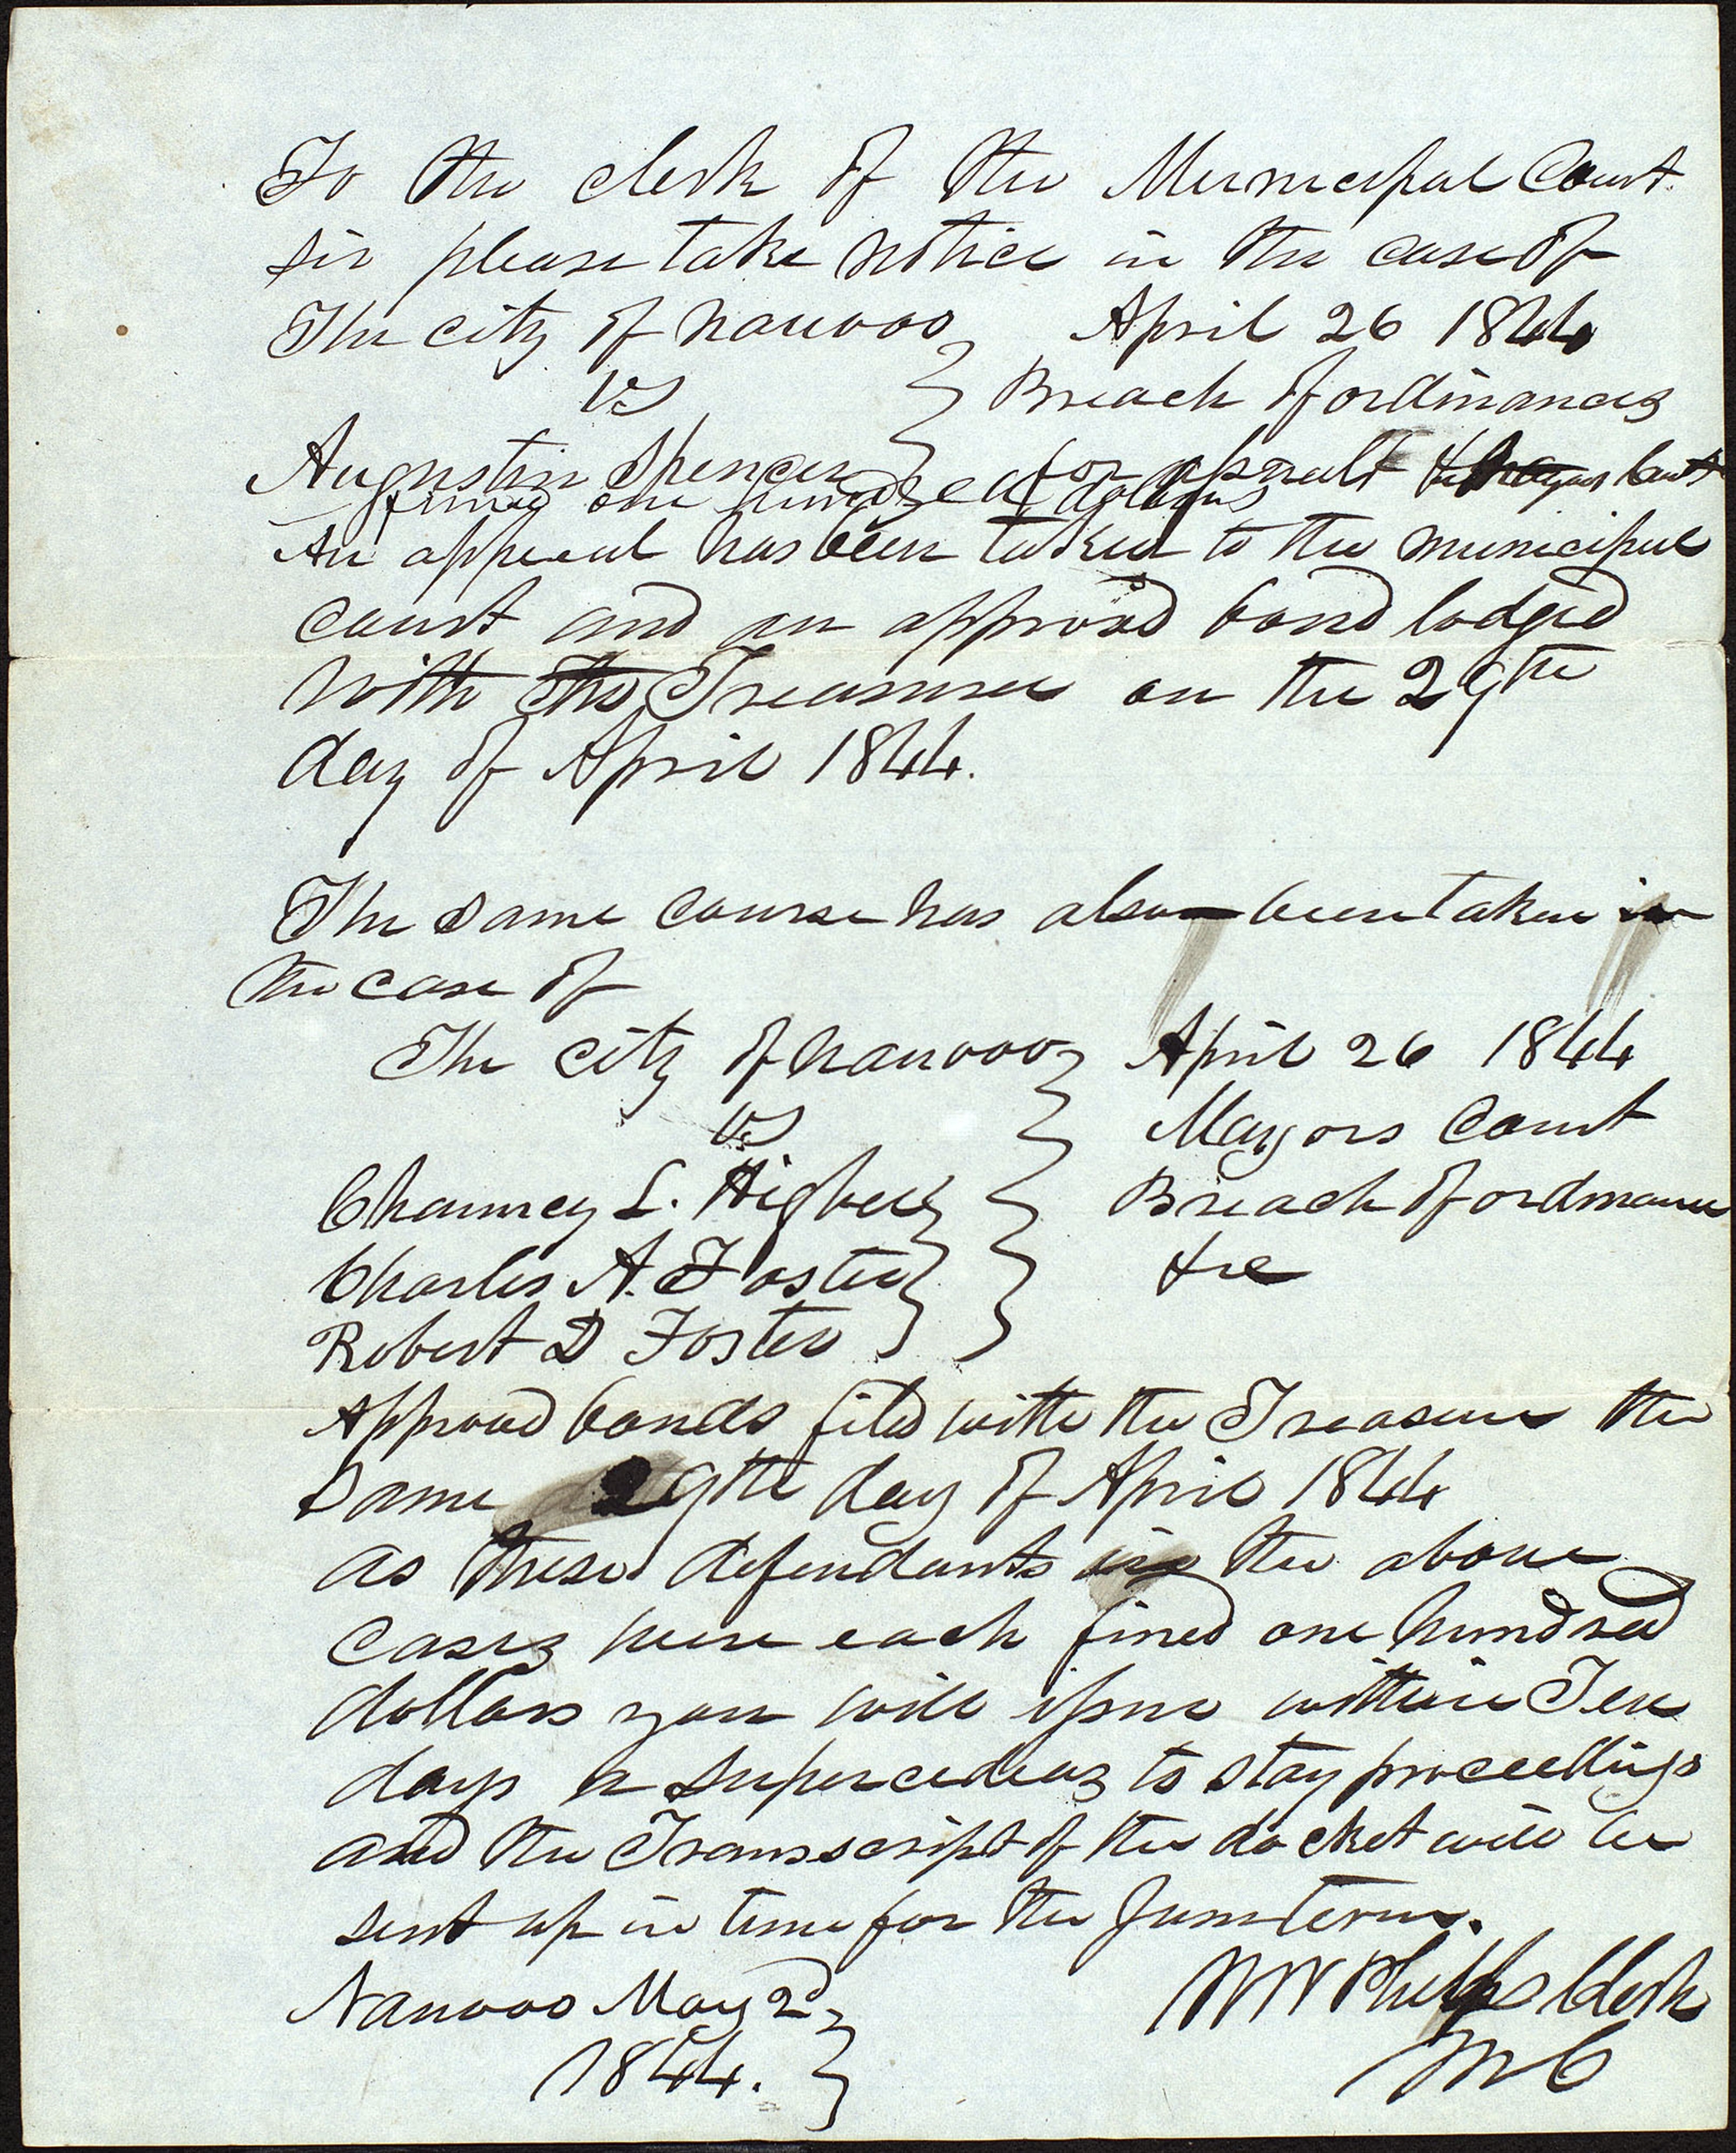 To the clerk of the Municipal Court.
Sir please take notice in the case of
The city of nauvoo April 26 1844
vs } Breach of ordinances
Augustin Spencer for assault &
fined one hundred dollars
An appeal has been taken to the municipal
court and an approvd bond lodged
with the Treasurer on the 29th
day of April 1844.
The same course has also been taken in
the case of
The city of nauvoo April 26 1844
vs } Mayors Court
Chauncey L. Higbee } Breach of ordinance
Charles A. Foster } &c
Robert D Foster }
Approved bonds filed with the Treasurer the
same 29th day of April 1844
as these defendants in the above
cases were each fined one hundred
dollars you will issue within Ten
days a supercedeas to stay proceedings
and the Transscript of the docket will be
sent up in time for the June term.
Nauvoo May 2d } W W Phelps Clerk
1844. } M C